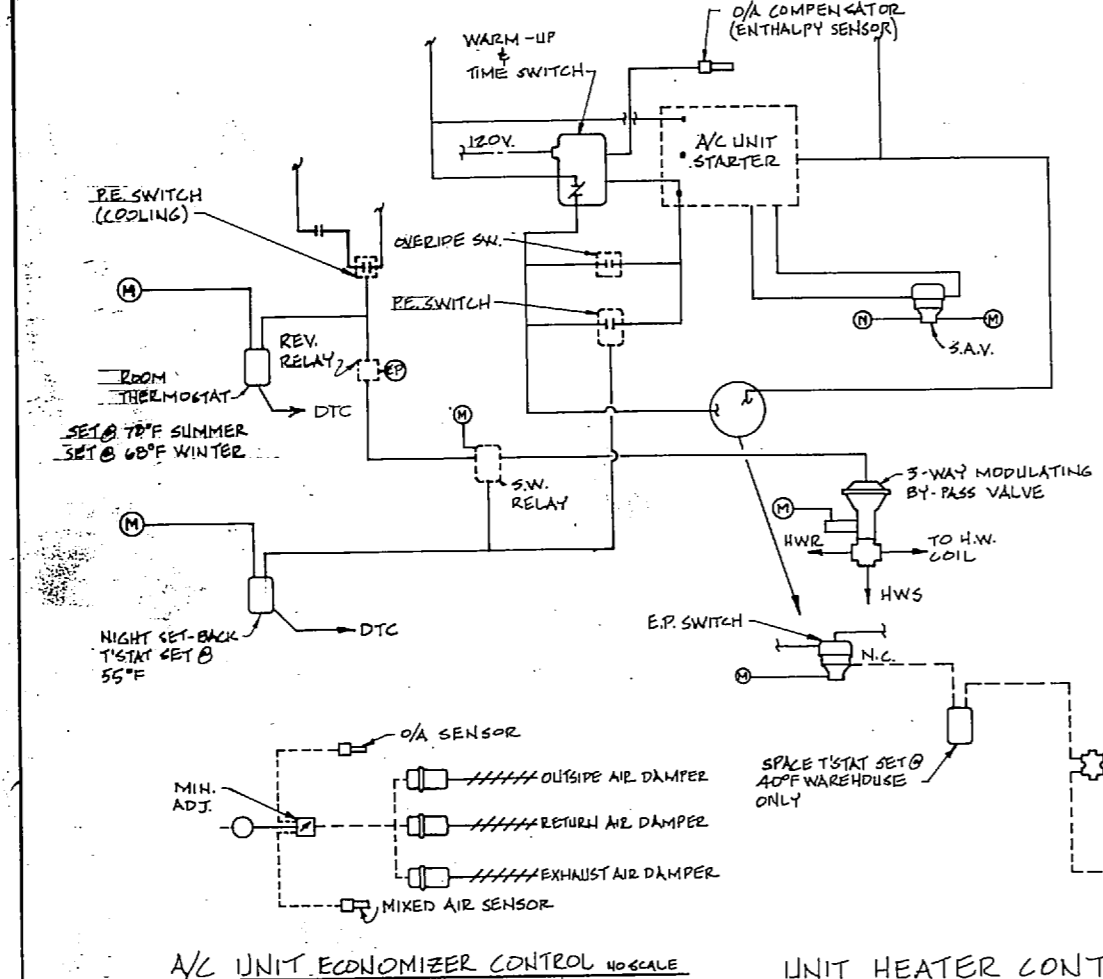 O/A COMPENSATOR
(ENTHALPY SENSOR)
WARM-UP
&
TIME SWITCH
120V.
A/C UNIT
STARTER
P.E. SWITCH
(COOLING)
OVERIDE SW.
M
P.E. SWITCH
REV.
RELAY
EP
N
M
S.A.V.
ROOM
THERMOSTAT
DTC
SET @ 78°F SUMMER
SET @ 68°F WINTER
M
S.W.
RELAY
3-WAY MODULATING
BY-PASS VALVE
M
HWR
TO H.W.
COIL
HWS
M
NIGHT SET-BACK
T'STAT SET @
55°F
DTC
E.P. SWITCH
N.C.
M
SPACE T'STAT SET @
40°F WAREHOUSE
ONLY
O/A SENSOR
MIN.
ADJ.
OUTSIDE AIR DAMPER
RETURN AIR DAMPER
EXHAUST AIR DAMPER
MIXED AIR SENSOR
A/C UNIT ECONOMIZER CONTROL NO SCALE
UNIT HEATER CONT